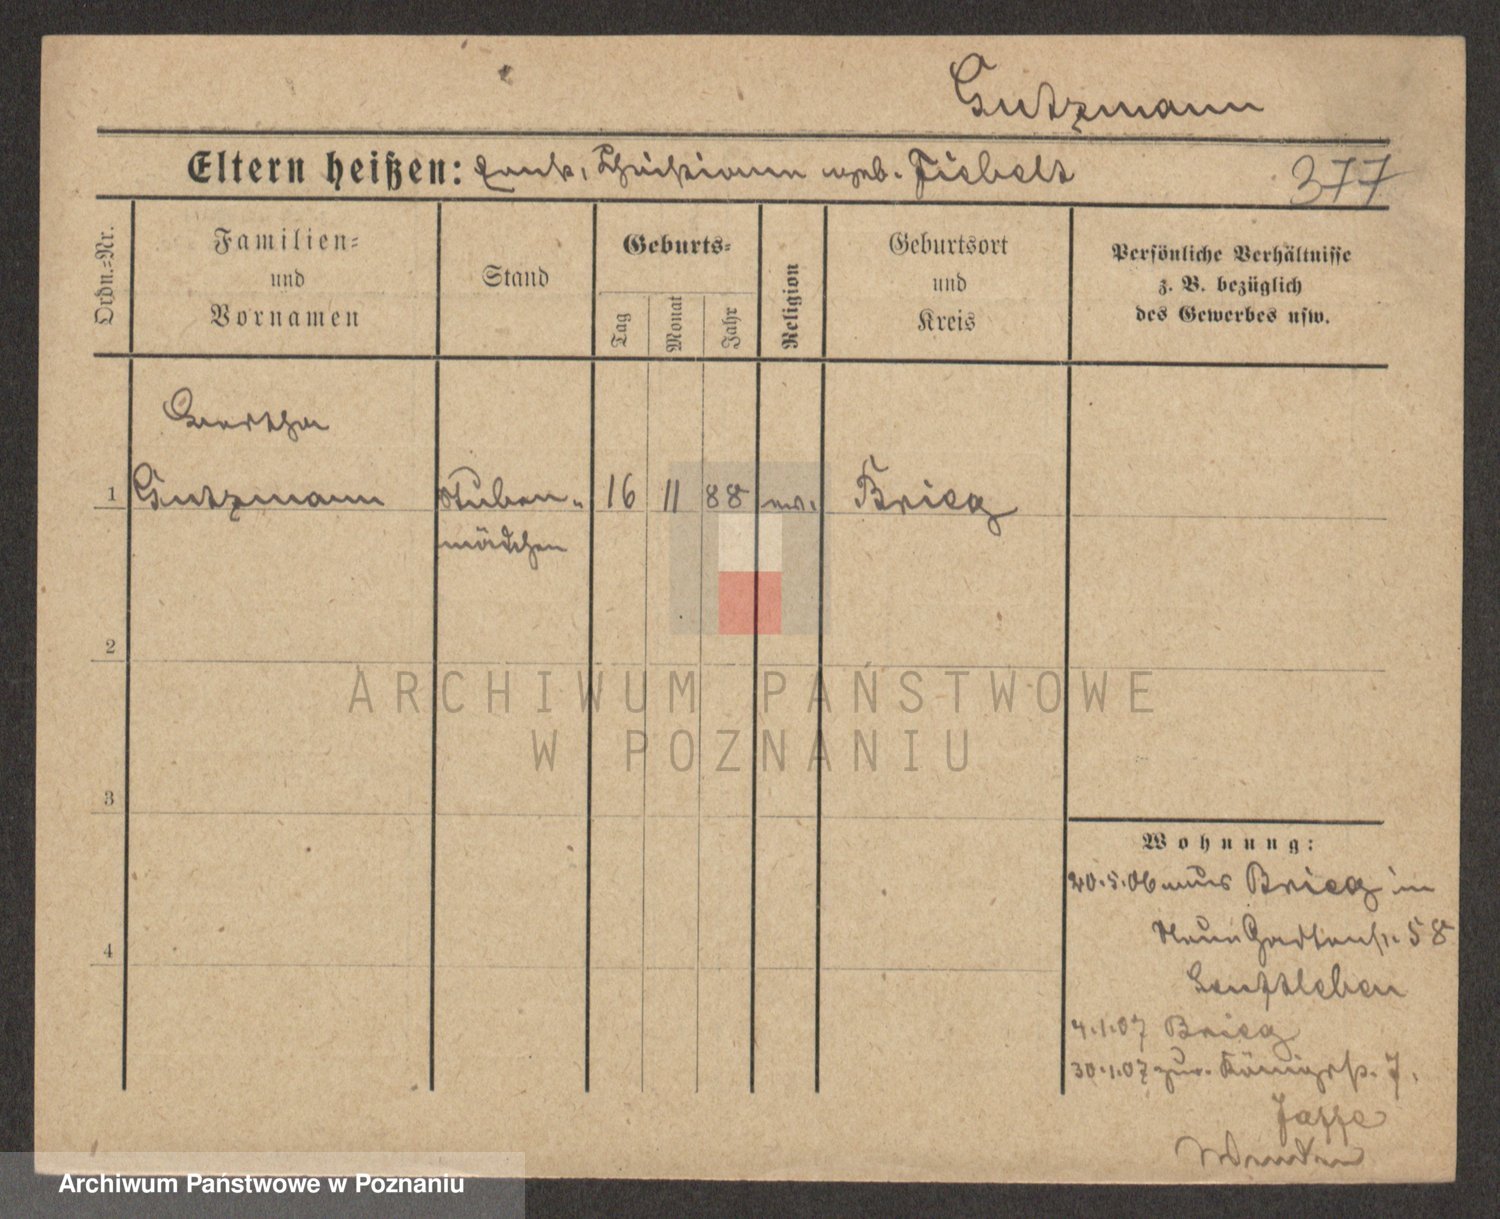 Gutzmann
Eltern heißen: geb. Fiebelt
377
Ordn.=Nr.
Familien=
und
Vornamen
Stand
Geburts=
Tag
Monat
Jahr
Religion
Geburtsort
und
Kreis
Persönliche Verhältnisse
z. B. bezüglich
des Gewerbes usw.
1
Gutzmann
Stuben-
mädchen
16
11
88
ev.
Brieg
2
3
4
Wohnung:
20.5.06 aus Brieg in
Neue Gartenstr. 58
4.1.07 Brieg
30.1.07 zur. Königstr. 7.
Jaffe
ARCHIWUM PAŃSTWOWE
W POZNANIU
Archiwum Państwowe w Poznaniu